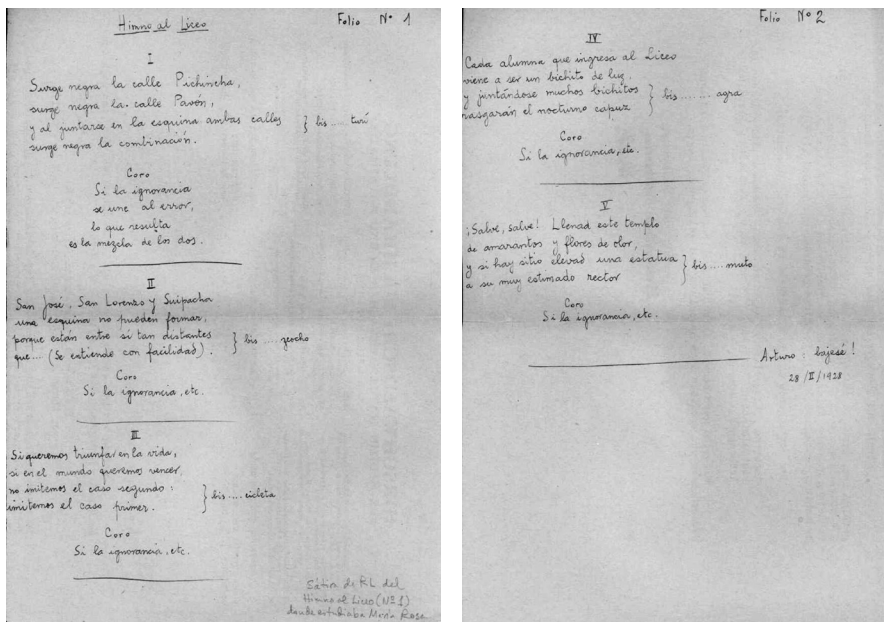 Himno al Liceo
Folio Nº 1
I
Surge negra la calle Pichincha,
surge negra la calle Pavón,
y al juntarse en la esquina ambas calles } bis ..... turí
surge negra la combinación.
Coro
Si la ignorancia
se une al error,
lo que resulta
es la mezcla de los dos.
II
San José, San Lorenzo y Suipacha
una esquina no pueden formar,
porque están entre sí tan distantes } bis ..... zcocho
que... (Se entiende con facilidad).
Coro
Si la ignorancia, etc.
III
Si queremos triunfar en la vida,
si en el mundo queremos vencer,
no imitemos el caso segundo: } bis .... cicleta
imitemos el caso primer.
Coro
Si la ignorancia, etc.
Sátira de RL del
Himno al Liceo (Nº 1)
donde estudiaba María Rosa
Folio Nº 2
IV
Cada alumna que ingresa al Liceo
viene a ser un bichito de luz,
y juntándose muchos bichitos } bis ........ agra
rasgarán el nocturno capuz
Coro
Si la ignorancia, etc.
V
¡Salve, salve! Llenad este templo
de amarantos y flores de olor,
y si hay sitio elevad una estatua } bis ..... muto
a su muy estimado rector
Coro
Si la ignorancia, etc.
Arturo: bajesé!
28/II/1928